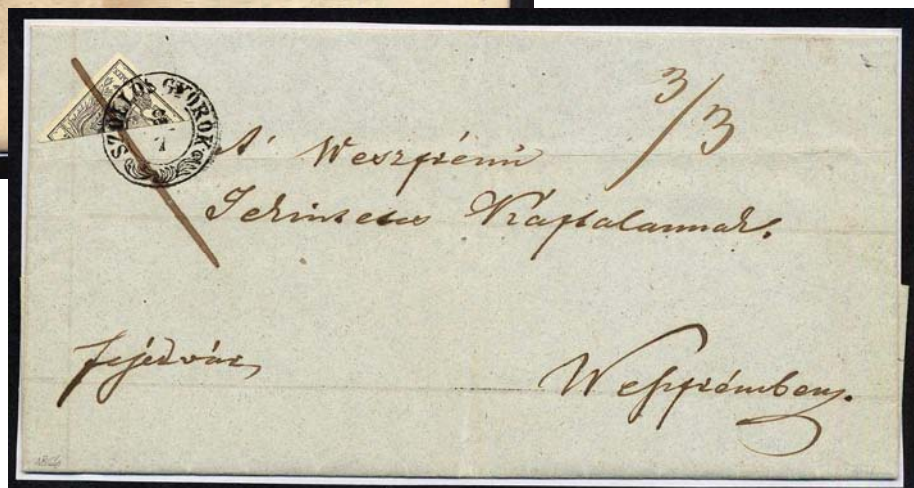 SZÖLLÖS GYÖRÖK
3/3
A' Weszprémi
Tekintetes Káptalannak.
fejérvár
Weszprémben.